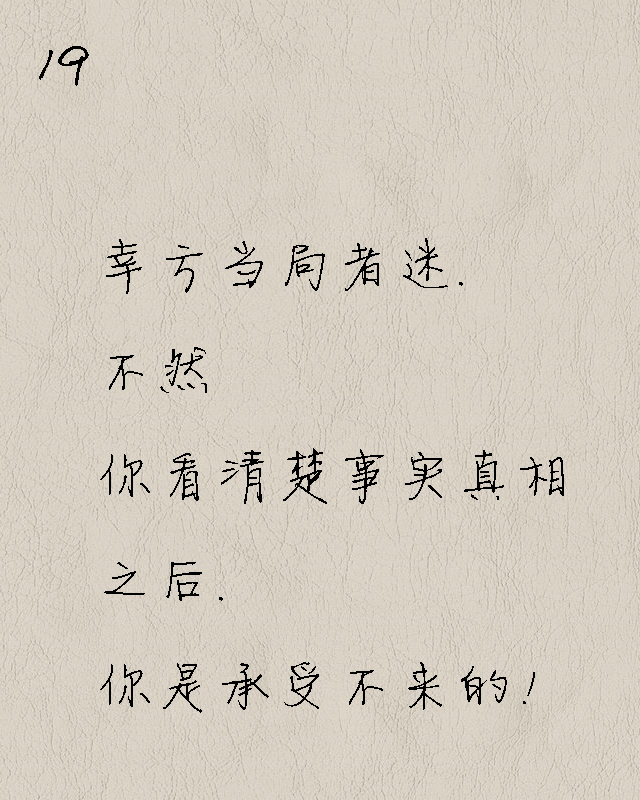 19
幸亏当局者迷.
不然
你看清楚事实真相
之后.
你是承受不来的!